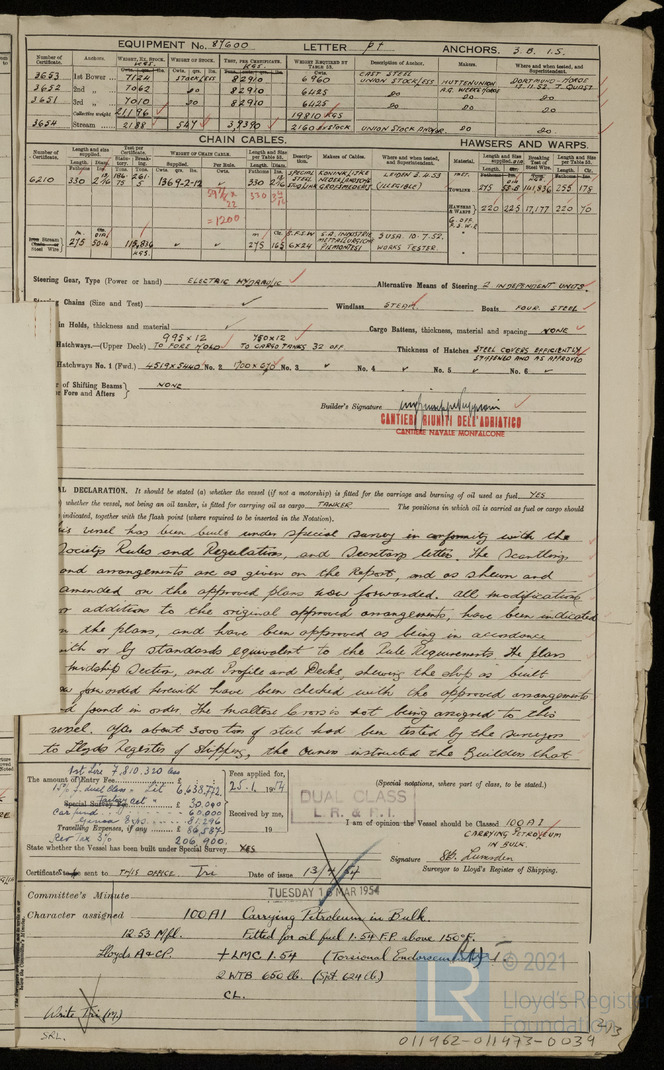 EQUIPMENT No. 87600 LETTER pt ANCHORS. 3 B. 1 S.
Number of Certificate. Anchors. Weight, Ex. Stock Weight of Stock. Test, per Certificate. Weight Required by Table 53. Description of Anchor. Makers. Where and when tested, and Superintendent.
3653 1st Bower 7124 STOCKLESS 82910 6960 CAST STEEL UNION STOCKLESS HUTTENUNION
3652 2nd " 7062 DO 82910 6425 DO DO
3651 3rd " 7010 DO 82910 6425 DO DO DO
Collective weight 21196 19810 KGS
3654 Stream 2188 547 2160 UNION STOCK ANCHOR DO DO
CHAIN CABLES. HAWSERS AND WARPS.
Number of Certificate. Length and size supplied. Test per Certificate. Weight of Chain Cable. Length and Size per Table 53. Description. Makers of Cables. Where and when tested, and Superintendent. Material. Length and Size supplied. Breaking Test of Steel Wire. Length and Size per Table 53.
6210 330 2 9/16 1369-2-12 330 LEIDEN 3.4.53 (ILLEGIBLE)
= 1200
TOWLINE 275 141,836 255 178
HAWSERS & WARPS 220 225 17,177 220 70
Steel Wire 275 50.4 275 165 6x24 S.A. INDUSTRIE METALLURGICHE PIEMONTESI 10-7.52. WORKS TESTER.
Steering Gear, Type (Power or hand) ELECTRIC HYDRAULIC Alternative Means of Steering 2 INDEPENDENT UNITS.
Chains (Size and Test) Windlass STEAM Boats FOUR STEEL
in Holds, thickness and material Cargo Battens, thickness, material and spacing NONE
995 x 12 750 x 12
Hatchways.—(Upper Deck) TO FORE HOLD TO CARGO TANKS 32 OFF Thickness of Hatches STEEL COVERS EFFICIENTLY STIFFENED AND AS APPROVED
Hatchways No. 1 (Fwd.) 4519 x 5440 No. 2 No. 3 No. 4 No. 5 No. 6
of Shifting Beams NONE
or Fore and Afters
Builder's Signature
CANTIERI RIUNITI DELL'ADRIATICO
CANTIERE NAVALE MONFALCONE
AL DECLARATION. It should be stated (a) whether the vessel (if not a motorship) is fitted for the carriage and burning of oil used as fuel YES
whether the vessel, not being an oil tanker, is fitted for carrying oil as cargo TANKER The positions in which oil is carried as fuel or cargo should
indicated, together with the flash point (where required to be inserted in the Notation).
is vessel has been built under special survey in conformity with the
Societys Rules and Regulations, and Secretarys letter. The scantlings
and arrangements are as given on the Report, and as shewn and
amended on the approved plans now forwarded. All modifications
or additions to the original approved arrangements, have been indicated
the plans, and have been approved as being in accordance
with or by standards equivalent to the Rule Requirements. The plans
midship Section, and Profile and Decks, shewing the ship as built
forwarded herewith have been checked with the approved arrangements
found in order. The Maltese Cross is not being assigned to this
vessel. After about 3000 tons of steel had been tested by the Surveyors
to Lloyds Register of Shipping, the Owners instructed the Builders that
7,810,320
The amount of Entry Fee 6,638,772. Fees applied for, 25.1. 1954
Special Survey Fee 30,000
60,000 Received by me,
81,296
Travelling Expenses, if any 86,587 19
206,900.
DUAL CLASS
L. R. & R. I.
(Special notations, where part of class, to be stated.)
I am of opinion the Vessel should be Classed 100 A1
CARRYING PETROLEUM
IN BULK.
State whether the Vessel has been built under Special Survey YES
Signature Lumsden
Surveyor to Lloyd's Register of Shipping.
Certificate to be sent to THIS OFFICE Tri Date of issue 13/4/54
Committee's Minute TUESDAY 16 MAR 1954
Character assigned 100A1 Carrying Petroleum in Bulk.
12.53 Mfl. Fitted for oil fuel 1.54 F.P. above 150°F.
Lloyds A&CP. + LMC 1.54 (Torsional Endorsement)
2 WTB 650 lb. (Spt. 624 lb)
CL.
Write Tri
SRL.
© 2021
LR
Lloyd's Register
Foundation
011962-011973-0039